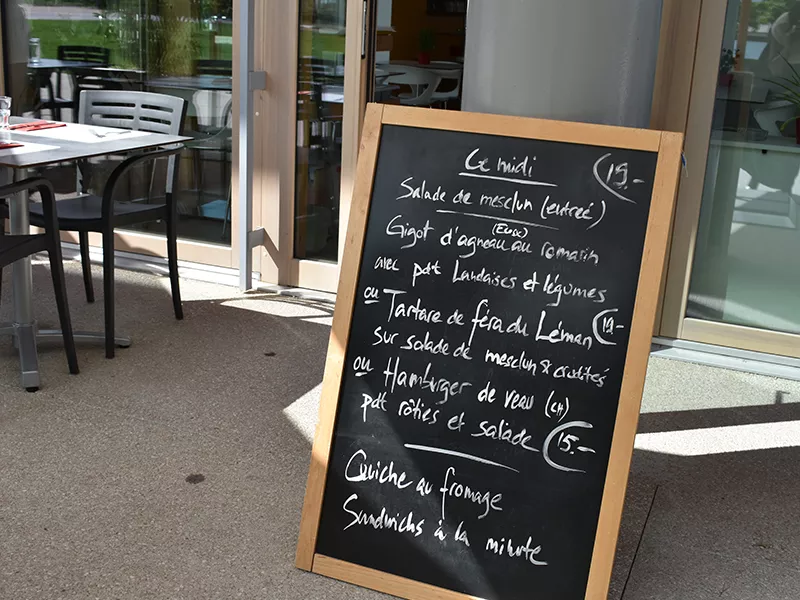 Ce midi 19.-
Salade de mesclun (entrée)
(Ecosse)
Gigot d'agneau au romarin
avec pdt Landaises et légumes
ou Tartare de féra du Léman 19.-
sur salade de mesclun & crudités
ou Hamburger de veau (CH)
pdt rôties et salade 15.-
Quiche au fromage
Sandwichs à la minute